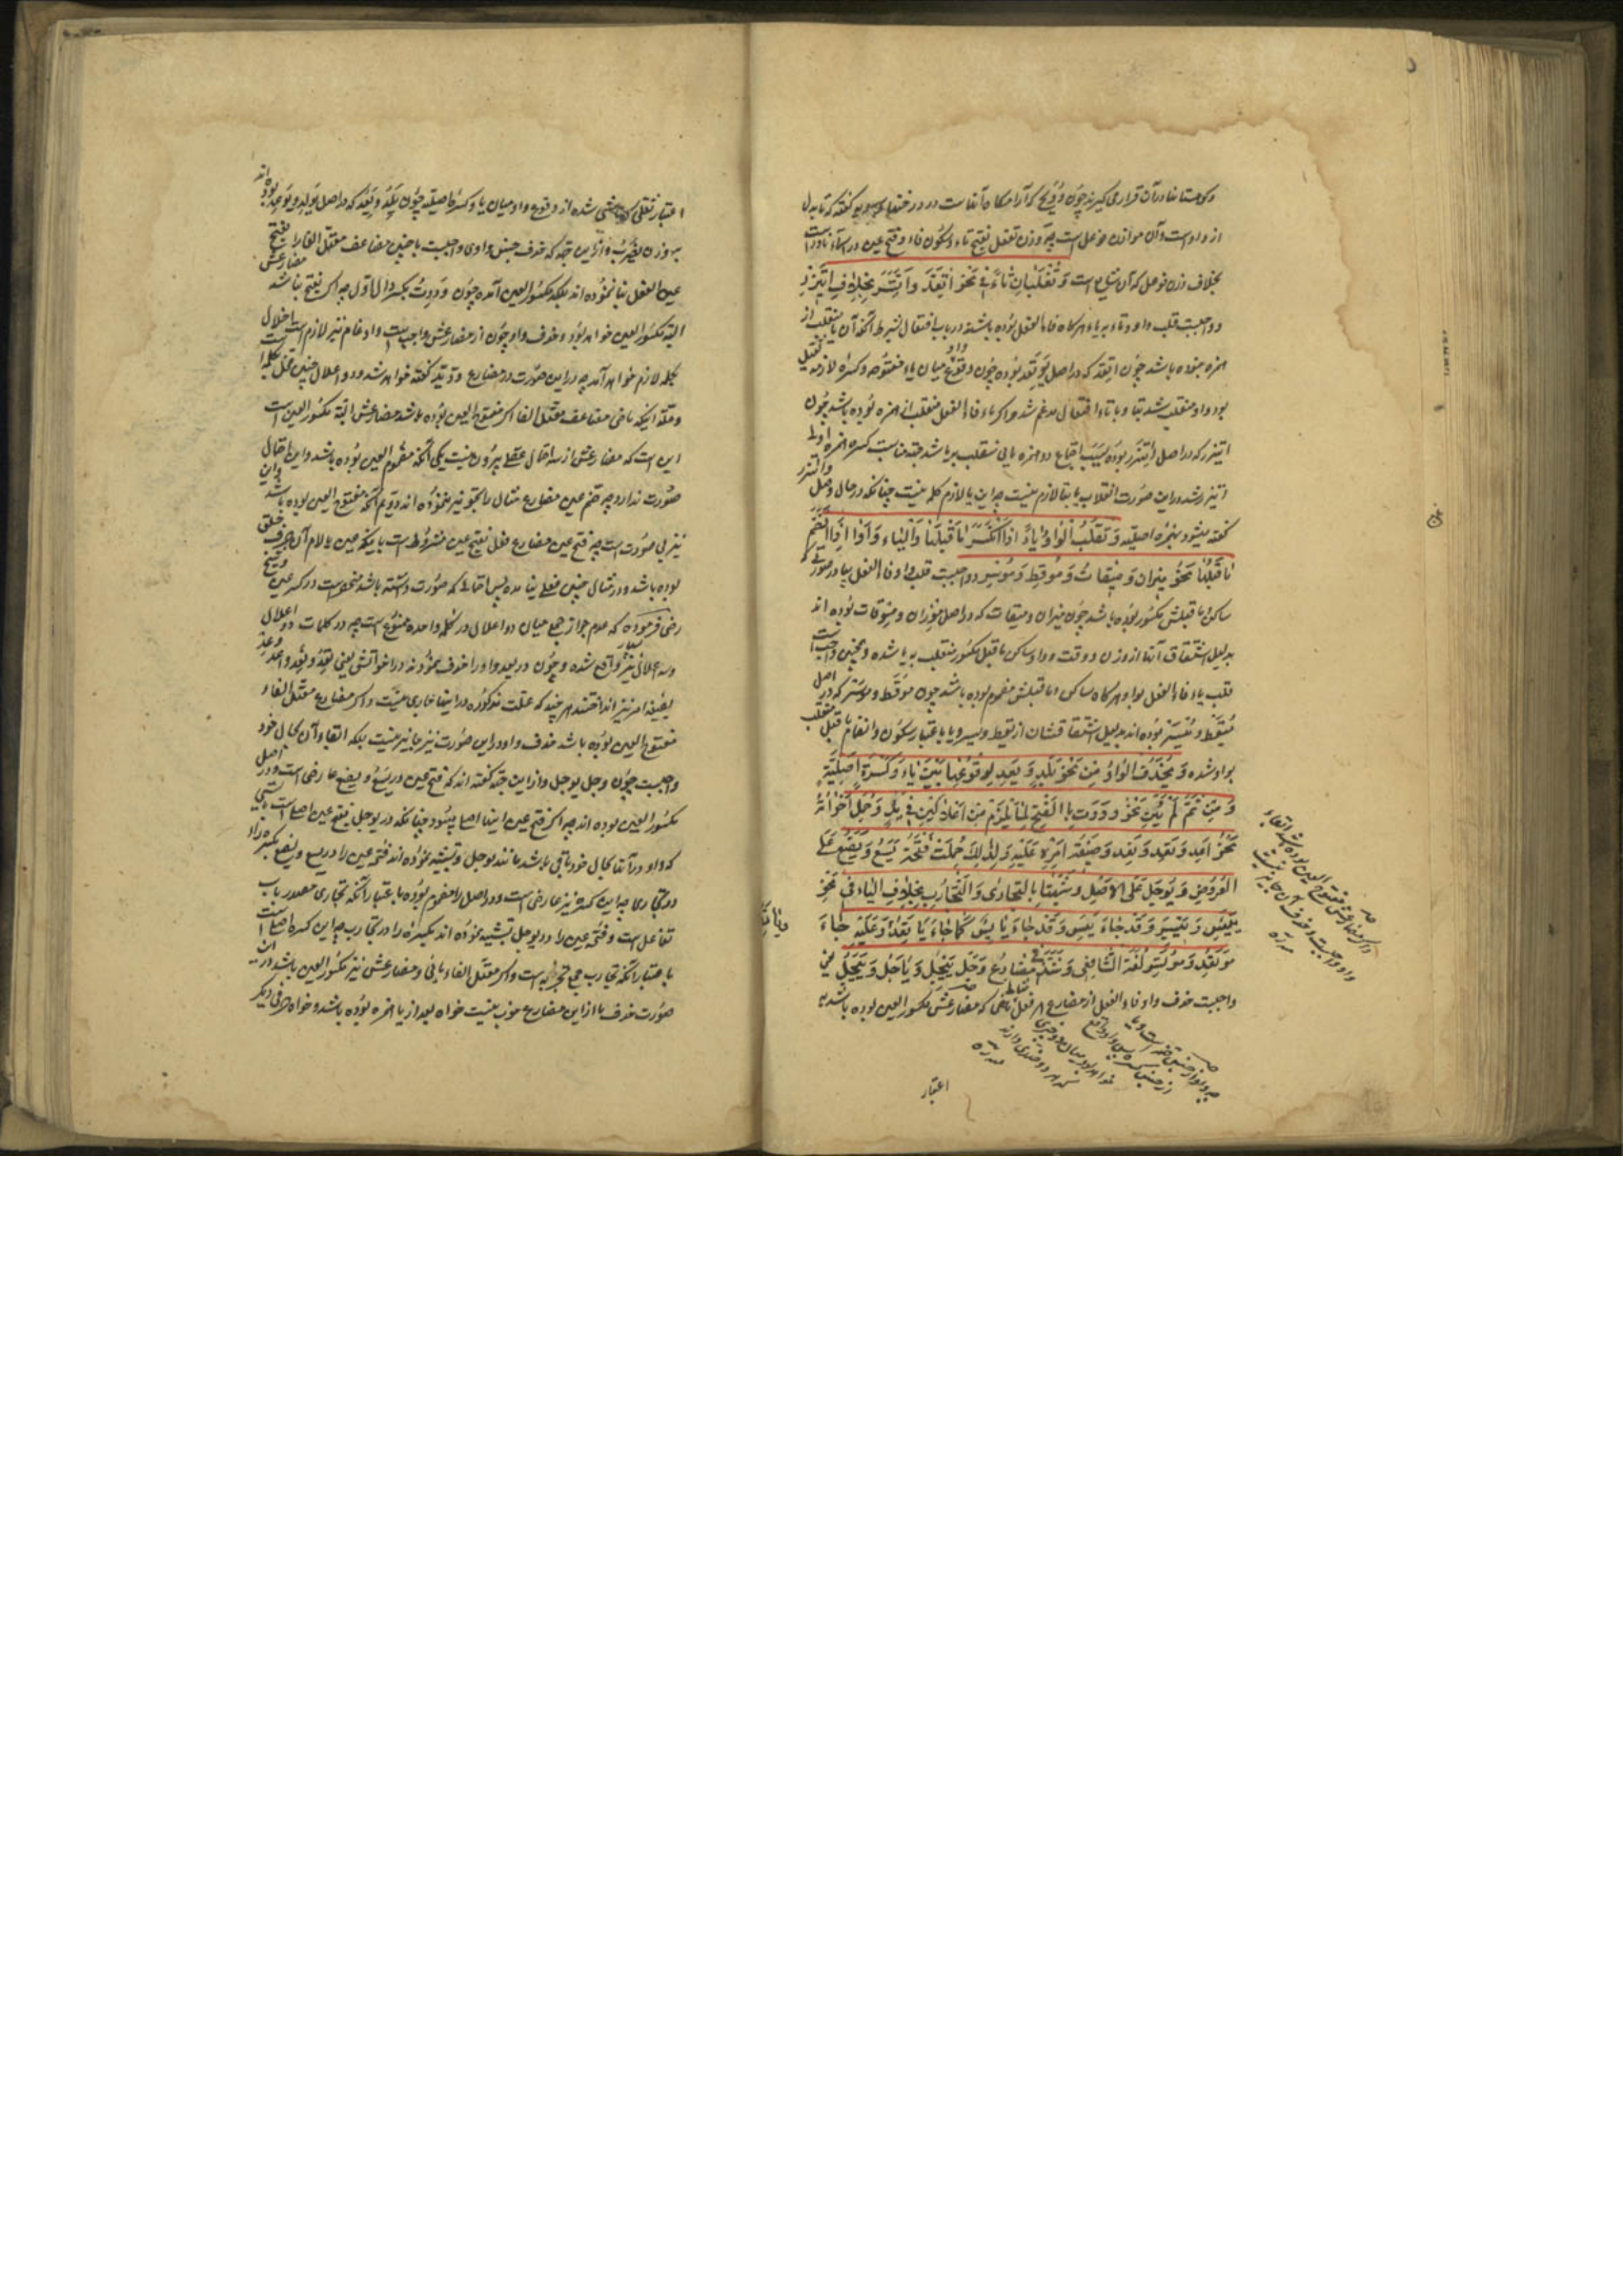 و کوهستانها در آن قرار می گیرند چون وُوَیْجٌ که آرامگاه آنهاست در درختها سیبویه گفته که تا بدل
از واو است و آن موازن فوعل است چه وزن تفعل بفتح تاء و سکون فاء و فتح عین در اسماء نادر است
بخلاف وزن فوعل که آن شایع است وَ تُقْلَبانِ تاءً فی نَحْوِ اتَّعَدَ وَ اتَّسَرَ بِخِلافِ ایتَزَرَ
و واجبست قلب واو و تاء به یاء هرگاه فاء الفعل بوده باشند در باب افتعال بشرط آنکه آن یا منقلب از
همزه نبوده باشد چون اتعد که در اصل یَوْتَعِدُ بوده چون واو وقوع میان یاء مفتوحه و کسره لازمه ثقیل
بود واو منقلب شد بتا و با تاء افتعال مدغم شد و اگر یاء فاء الفعل منقلب از همزه بوده باشد چون
ایتزر که در اصل اِئْتَزَرَ بوده بسبب اجتماع دو همزه یایی منقلب بر یا شد جهة مناسبت کسره همزه اولی
ایتزر شد در این صورت انقلاب یا بتا لازم نیست چه این یا لازم کلمه نیست چنانکه در حال وصل وائتزر
گفته میشود بهمزه اصلیه وَ تُقْلَبُ الْواوُ یاءً اِذَا انْکَسَرَ ما قَبْلَها وَ الْیاءُ واواً اِذَا انْضَمَّ
ما قَبْلَها نَحْوُ میزان وَ میقات وَ مُوقِظ وَ مُوسِر و واجبست قلب واو فاء الفعل بیا در صورتی که
ساکن و ما قبلش مکسور بوده باشد چون میزان و میقات که در اصل مِوْزان و مِوْقات بوده اند
بدلیل اشتقاق آنها از وزن و وقت و واو ساکن ما قبل مکسور منقلب به یا شده و همچنین واجب است
قلب یاء فاء الفعل بواو هرگاه ساکن و ما قبلش مضموم بوده باشد چون موقظ و موسر که در اصل
مُیْقِظ و مُیْسِر بوده اند بدلیل اشتقاقشان از یقظ و یسر و یا باعتبار سکون و انضمام ما قبل منقلب
بواو شده وَ یُحْذَفُ الْواوُ مِنْ نَحْوِ یَلِدُ وَ یَعِدُ لِوُقُوعِها بَیْنَ یاءٍ وَ کَسْرَةٍ اَصْلِیَّةٍ
وَ مِنْ ثَمَّ لَمْ یُبْنَ نَحْوُ وَدَدْتُ بِالْفَتْحِ لِما یَلْزَمُ مِنْ اِعْلالَیْنِ فی یَدُّ وَ حُمِلَ اَخَواتُهُ
نَحْوُ اَعِدُ وَ نَعِدُ وَ تَعِدُ وَ صیغَةُ اَمْرِهِ عَلَیْهِ وَ لِذٰلِکَ حُمِلَتْ فَتْحَةُ یَسَعُ وَ یَضَعُ عَلَی
الْعُرُوضِ وَ یَوْجَلُ عَلَی الْاَصْلِ وَ شُبِّهَتا بِالتَّجاری وَ التَّجارِبِ بِخِلافِ الْیاءِ فی نَحْوِ
یَیْئِسُ وَ یَیْسِرُ وَ قَدْ جاءَ یَئِسُ وَ قَدْ جاءَ یائِسُ کَما جاءَ یاتَعِدُ وَ عَلَیْهِ جاءَ
مُوتَعِد وَ مُوتَسِر لُغَةُ الشّافِعی وَ شَذَّ فی مُضارِعِ وَجِلَ یَیْجَلُ وَ یاجَلُ وَ یِیجَلُ یعنی
واجبست حذف واو فاء الفعل از مضارع هر فعل ماضی که مضارعش مکسور العین بوده باشد به
اعتبار
اعتبار ثقلی که ناشی شده از وقوع واو میان یا و کسره اصلیه چون یَلِدُ و یَعِدُ که در اصل یَوْلِدُ و یَوْعِدُ بوده اند
بر وزن یضرب و از این جهة که حذف چنین واوی واجبست ماضی مضاعف معتل الفا را بفتح
عین الفعل بنا ننموده اند بلکه مکسور العین آمده چون وَدِدْتُ بکسر دال اول چه اگر بفتح باشد مضارعش
البته مکسور العین خواهد بود و حذف واو چون از مضارعش واجبست و ادغام نیز لازم است اخلال
بکلمه لازم خواهد آمد چه در این صورت در مضارع وَدَّ یَدُّ گفته خواهد شد و دو اعلال چنین مخل کلمه است
و علة اینکه ماضی مضاعف معتل الفا اگر مفتوح العین بوده باشد مضارعش البته مکسور العین است
این است که مضارعش از سه احتمال عقلی بیرون نیست یکی آنکه مضموم العین بوده باشد و این احتمال
صورت ندارد چه ضم عین مضارع مثال را تجویز ننموده اند دویم آنکه مفتوح العین بوده باشد و این
نیز بی صورت است چه فتح عین مضارع فعل بفتح عین مشروط است باینکه عین یا لام آن حرف حلق
بوده باشد و در مثال چنین فعلی نیامده پس احتمالی که صورت داشته باشد منحصر است در کسر عین و شیخ
رضی فرموده که عدم جواز جمع میان دو اعلال در کلمه واحده ممنوع است چه در کلمات دو اعلال
و سه اعلال نیز بسیار واقع شده و چون در یعد واو را حذف نمودند در اخواتش یعنی تعد و نعد و اعد و عد
بصیغه امر نیز انداختند هر چند که علت مذکوره در اینها جاری نیست و اگر مضارع معتل الفاء
مفتوح العین بوده باشد حذف واو در این صورت نیز جایز نیست بلکه ابقاء آن بحال خود
واجبست چون وجل یوجل و از این جهة گفته اند که فتح عین در یسع و یضع عارضی است و در اصل
مکسور العین بوده اند چه اگر فتح عین اینها اصلی میبود چنانکه در یوجل فتح عین اصلی است بایستی
که واو در آنها بحال خود باقی باشد مانند یوجل و تشبیه نموده اند فتحه عین را در یسع و یضع بکسره راء
در تجاری چه این کسره نیز عارضی است و در اصل را مضموم بوده باعتبار آنکه تجاری مصدر باب
تفاعل است و فتحه عین را در یوجل تشبیه نموده اند بکسره را در تجارب چه این کسره اصلی است
باعتبار آنکه تجارب جمع تجربه است و اگر معتل الفاء یائی و مضارعش نیز مکسور العین باشد در این
صورت حذف یا از این مضارع خوب نیست خواه بعد از یا همزه بوده باشد و خواه حرفی دیگر